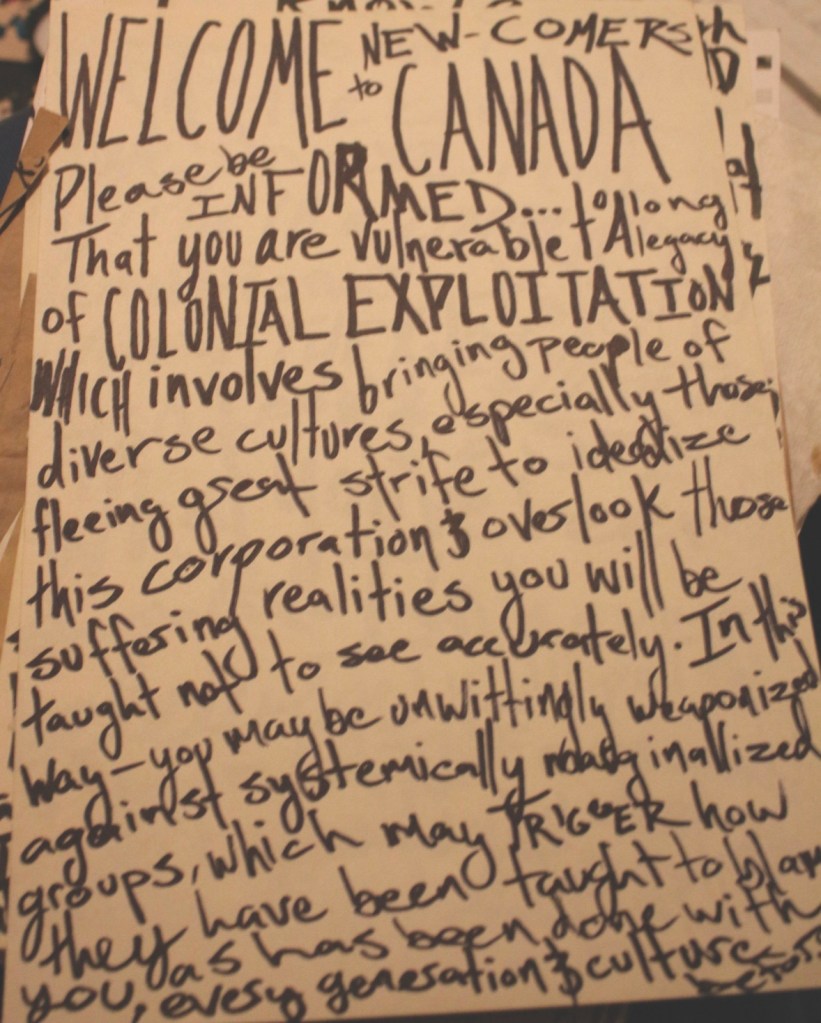 WELCOME NEW-COMERS
to CANADA
Please be
INFORMED...
That you are vulnerable to A long legacy
of COLONIAL EXPLOITATION
WHICH involves bringing people of
diverse cultures, especially those
fleeing great strife to idealize
this corporation & overlook those
suffering realities you will be
taught not to see accurately. In this
way-you may be unwittingly weaponized
against systemically marginallized
groups, which may TRIGGER how
they have been taught to blame
you, as has been done with
every generation & culture before